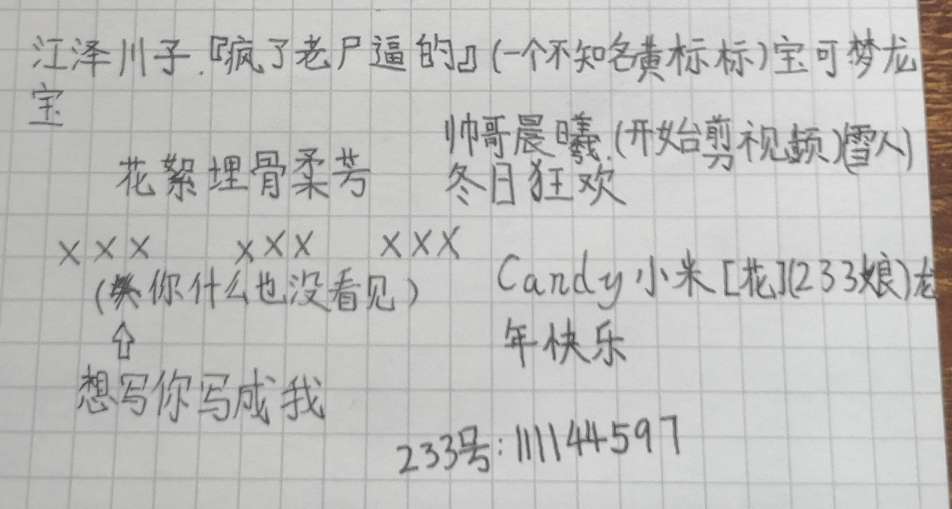 江泽川子.『疯了老尸逼的』(一个不知名黄标标)宝可梦龙
宝
帅哥晨曦.(开始剪视频)(雪人)
花絮埋骨柔芳
冬日狂欢
××× ××× ×××
(你什么也没看见)
Candy小米[花](233娘)龙
年快乐
⇧
想写你写成我
233号:111144597